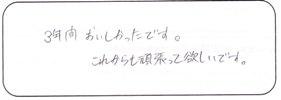 3年間おいしかったです。
これからも頑張って欲しいです。